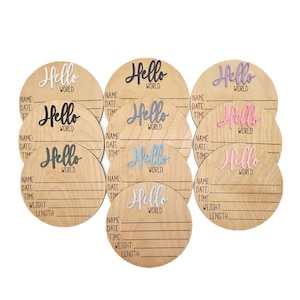 Hello
WORLD
NAME:
DATE:
TIME:
Hello
WORLD
NAME:
DATE:
TIME:
Hello
WORLD
NAME:
DATE:
TIME:
Hello
WORLD
NAME:
DATE:
TIME:
Hello
WORLD
NAME:
DATE:
TIME:
Hello
WORLD
NAME:
DATE:
TIME:
Hello
WORLD
NAME:
DATE:
TIME:
WEIGHT:
LENGTH:
Hello
WORLD
NAME:
DATE:
TIME:
Hello
WORLD
NAME:
DATE:
TIME:
WEIGHT:
LENGTH:
Hello
WORLD
NAME:
DATE:
TIME:
WEIGHT:
LENGTH: